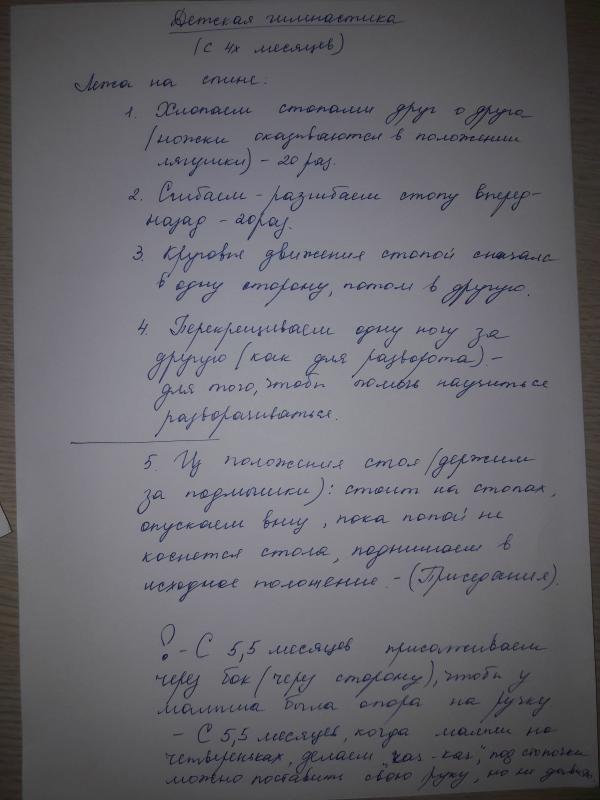 Детская гимнастика
(с 4х месяцев)
Лежа на спине:
1. Хлопаем стопами друг о друга
(ножки оказываются в положении
лягушки) - 20 раз.
2. Сгибаем - разгибаем стопу вперед-
назад - 20 раз.
3. Круговые движения стопой сначала
в одну сторону, потом в другую.
4. Перекрещиваем одну ногу за
другую (как для разворота) -
для того, чтобы помочь научиться
разворачиваться.
5. Из положения стоя (держим
за подмышки): стоит на стопах,
опускаем вниз, пока попой не
коснется стола, поднимаем в
исходное положение - (Приседания).
! - С 5,5 месяцев присаживаем
через бок (через сторону), чтобы у
малыша была опора на ручку
- С 5,5 месяцев, когда малыш на
четвереньках, делаем "кач-кач", под стопочки
можно поставить свою руку, но не